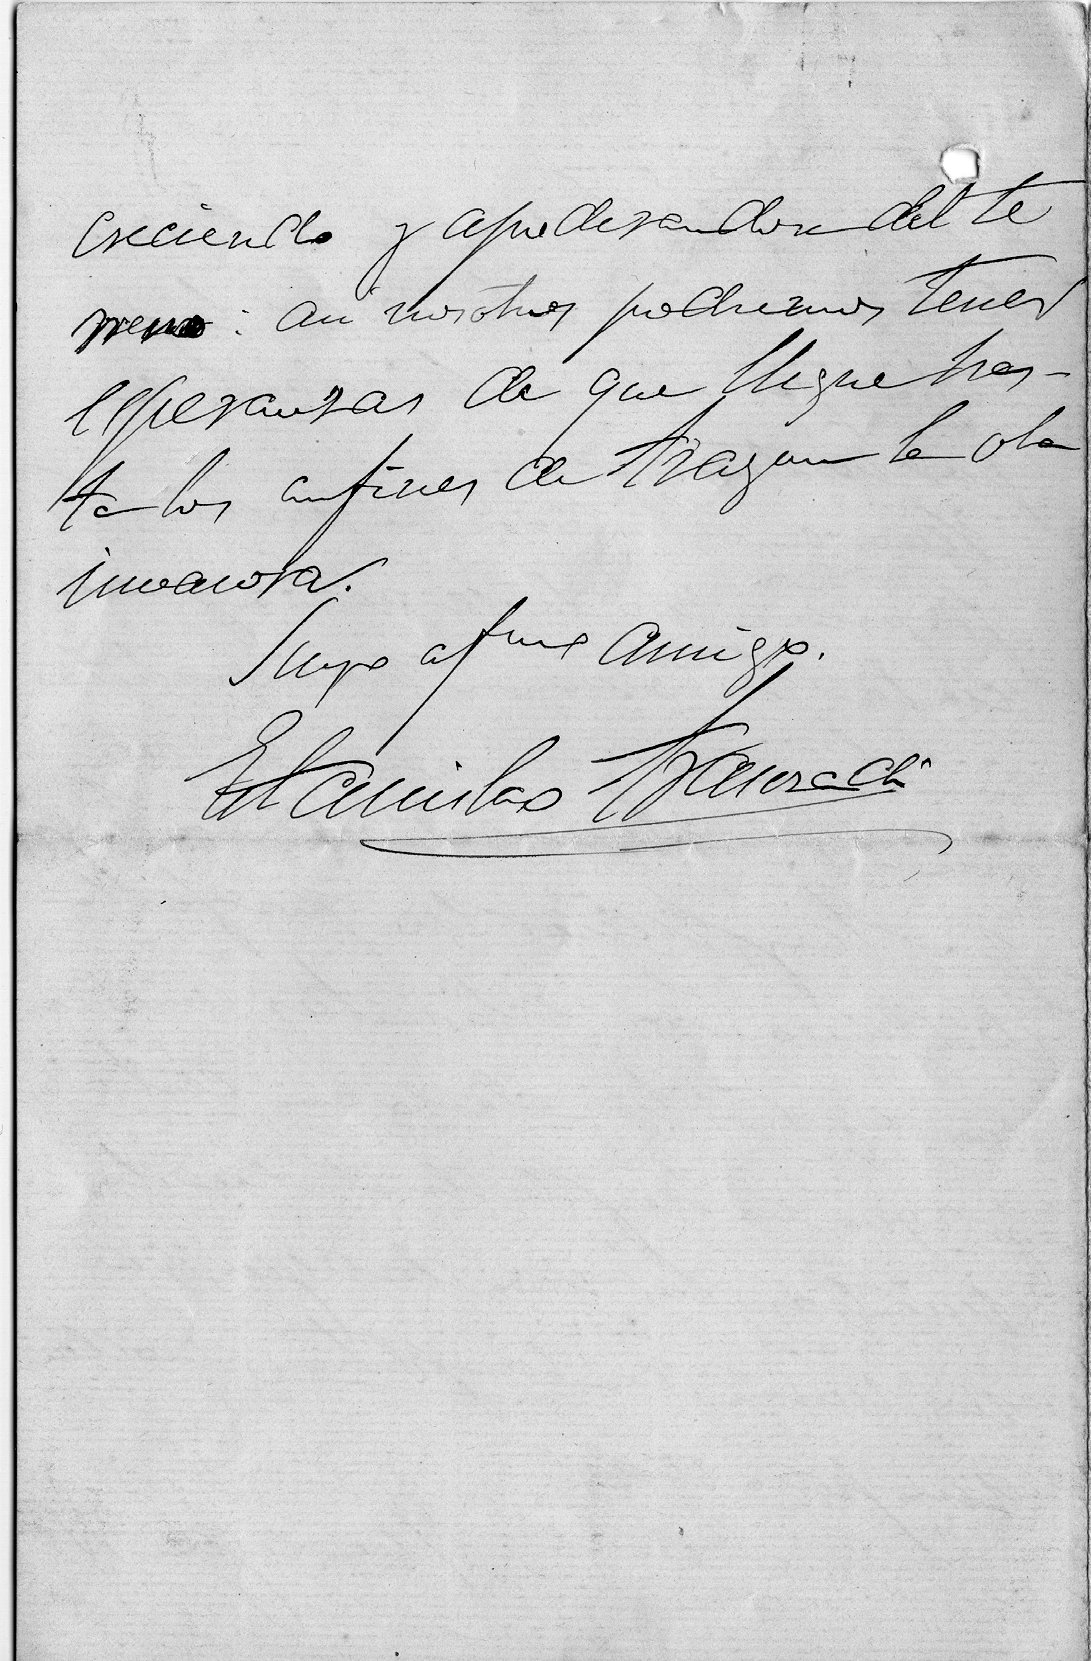 creciendo y apoderandose del te
rreno: asi nosotros podremos tener
esperanzas de que llegue has-
ta los confines de Aragon la ola
invasora.
Suyo afmo amigo.
Estanislao